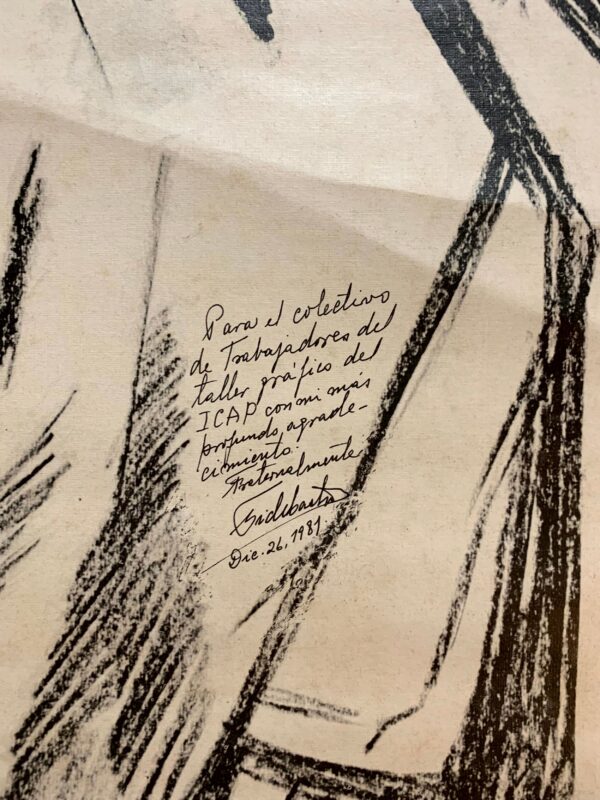 Para el colectivo
de Trabajadores del
taller gráfico del
ICAP con mi más
profundo agrade-
cimiento.
Fraternalmente
Dic. 26, 1981